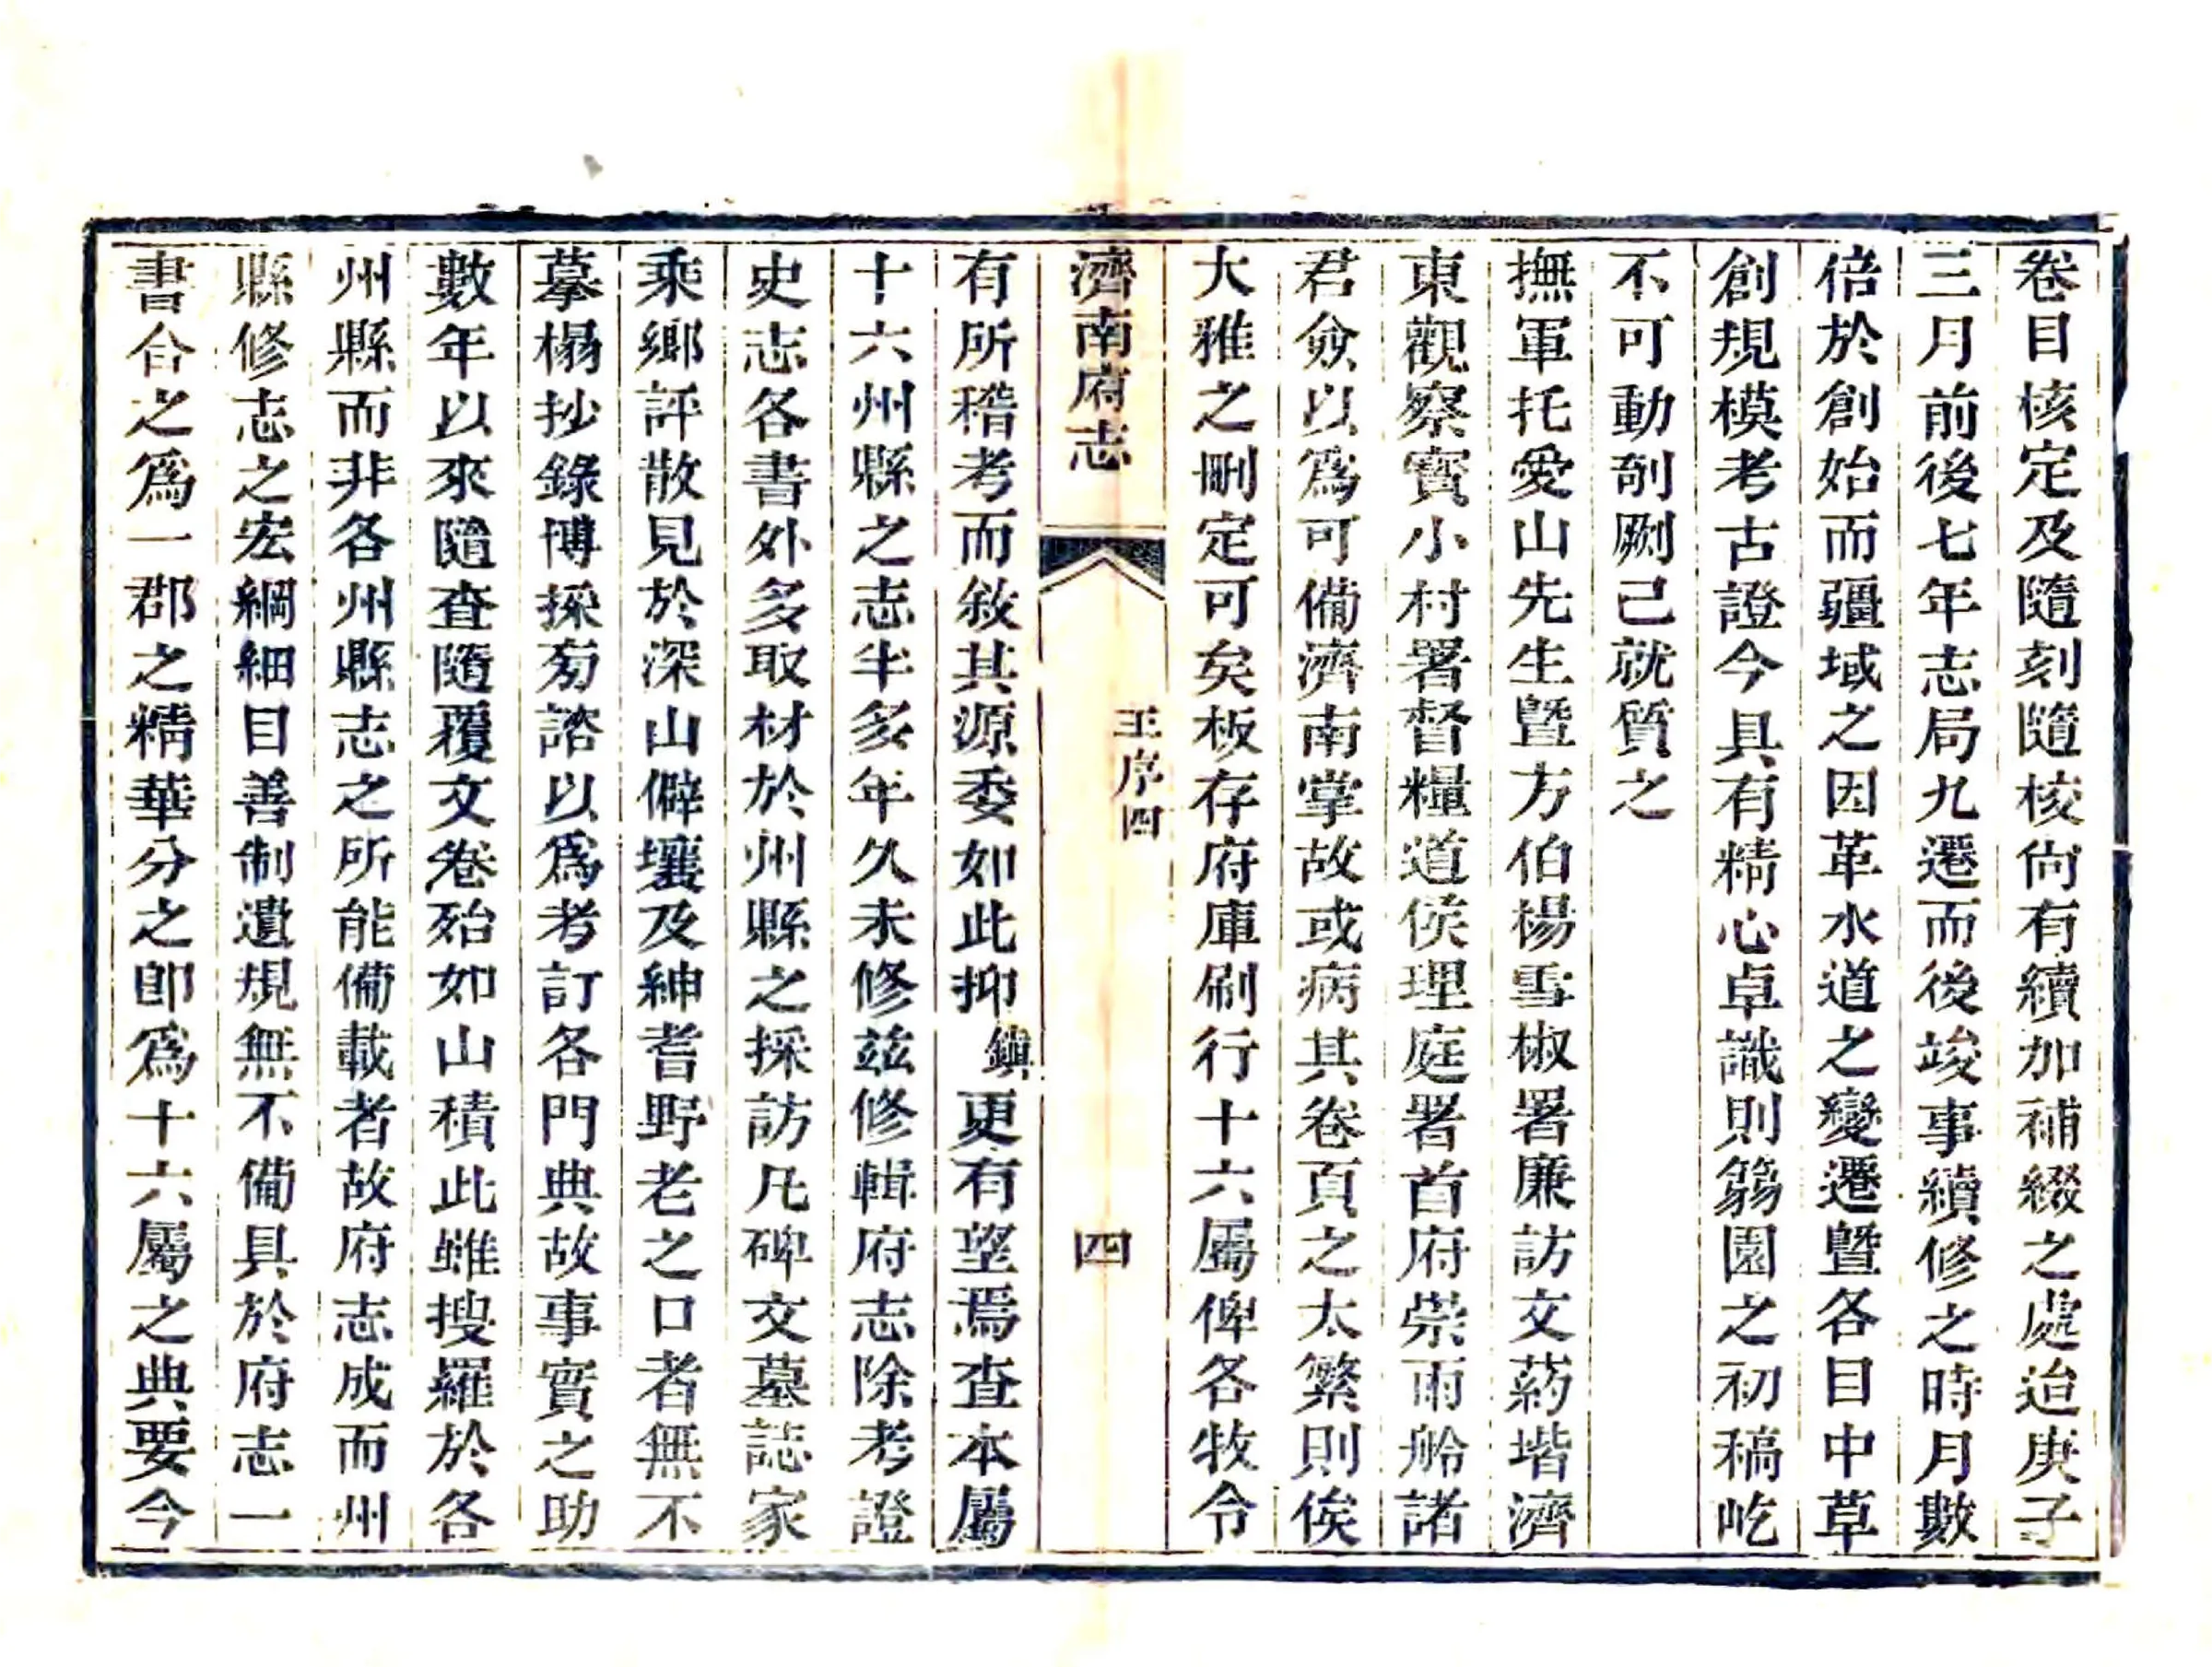 卷目核定及隨刻隨核尙有續加補綴之處迨庚子
三月前後七年志局九遷而後竣事續修之時月數
倍於創始而疆域之因革水道之變遷曁各目中草
創規模考古證今具有精心卓識則篛園之初稿屹
不可動剞劂己就質之
撫軍托愛山先生曁方伯楊雪椒署廉訪文葯堦濟
東觀察寳小村署督糧道侯理庭署首府崇雨舲諸
君僉以爲可備濟南掌故或病其卷頁之太繁則俟
大雅之刪定可矣板存府庫刷行十六屬俾各牧令
濟南府志
王序四
四
有所稽考而敘其源委如此抑鎮更有望焉查本屬
十六州縣之志半多年久未修兹修輯府志除考證
史志各書外多取材於州縣之採訪凡碑文墓誌家
乘鄉評散見於深山僻壤及紳耆野老之口者無不
摹榻抄錄博採旁諮以爲考訂各門典故事實之助
數年以來隨查隨覆文卷殆如山積此雖搜羅於各
州縣而非各州縣志之所能備載者故府志成而州
縣修志之宏綱細目善制遺規無不備具於府志一
書合之爲一郡之精華分之卽爲十六屬之典要今